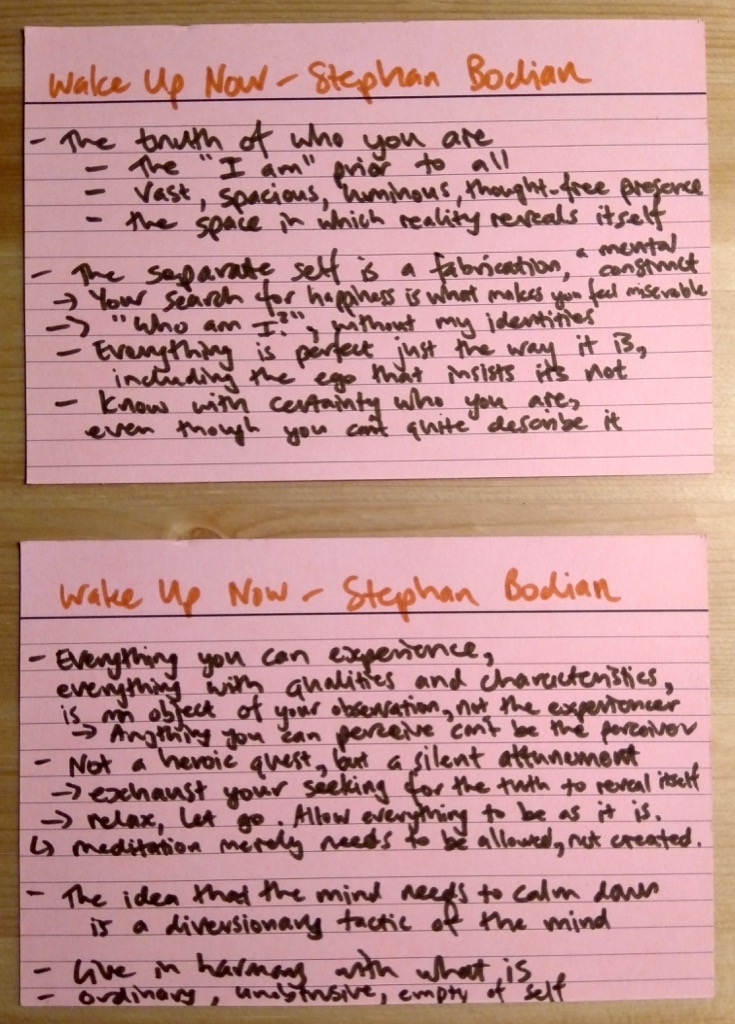 Wake Up Now - Stephan Bodian
- The truth of who you are
- The "I am" prior to all
- Vast, spacious, luminous, thought-free presence
- the space in which reality reveals itself
- The separate self is a fabrication, a mental construct
→ Your search for happiness is what makes you feel miserable
→ "Who am I?", without my identities
- Everything is perfect just the way it is,
including the ego that insists its not
- Know with certainty who you are,
even though you cant quite describe it
Wake Up Now - Stephan Bodian
- Everything you can experience,
everything with qualities and characteristics,
is an object of your observation, not the experiencer
→ Anything you can perceive can't be the perceiver
- Not a heroic quest, but a silent attunement
→ exhaust your seeking for the truth to reveal itself
→ relax, let go. Allow everything to be as it is.
↳ meditation merely needs to be allowed, not created.
- The idea that the mind needs to calm down
is a diversionary tactic of the mind
- Live in harmony with what is
- ordinary, unobtrusive, empty of self